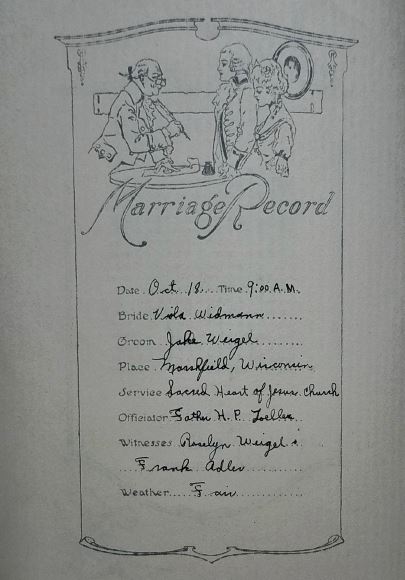 Marriage Record
Date Oct. 18. Time 9:00 A.M.
Bride Viola Widmann
Groom Jake Weigel
Place Marshfield, Wisconsin
Service Sacred Heart of Jesus Church
Officiator Father H. P.
Witnesses Roselyn Weigel &
Frank Adler
Weather Fair